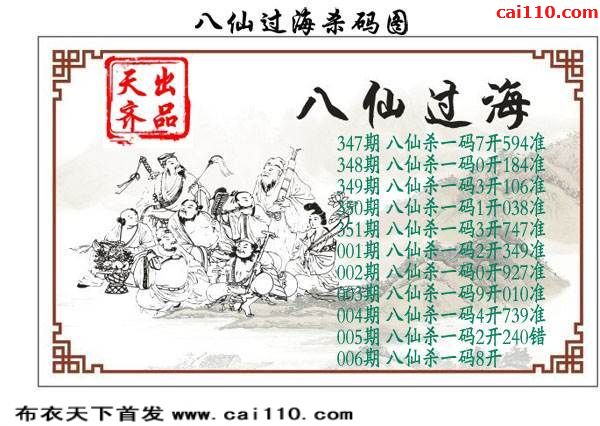 八仙过海杀码图
cai110.com
天齐
出品
八仙过海
347期 八仙杀一码7开594准
348期 八仙杀一码0开184准
349期 八仙杀一码3开106准
350期 八仙杀一码1开038准
351期 八仙杀一码3开747准
001期 八仙杀一码2开349准
002期 八仙杀一码0开927准
003期 八仙杀一码9开010准
004期 八仙杀一码4开739准
005期 八仙杀一码2开240错
006期 八仙杀一码8开
布衣天下首发 www.cai110.com